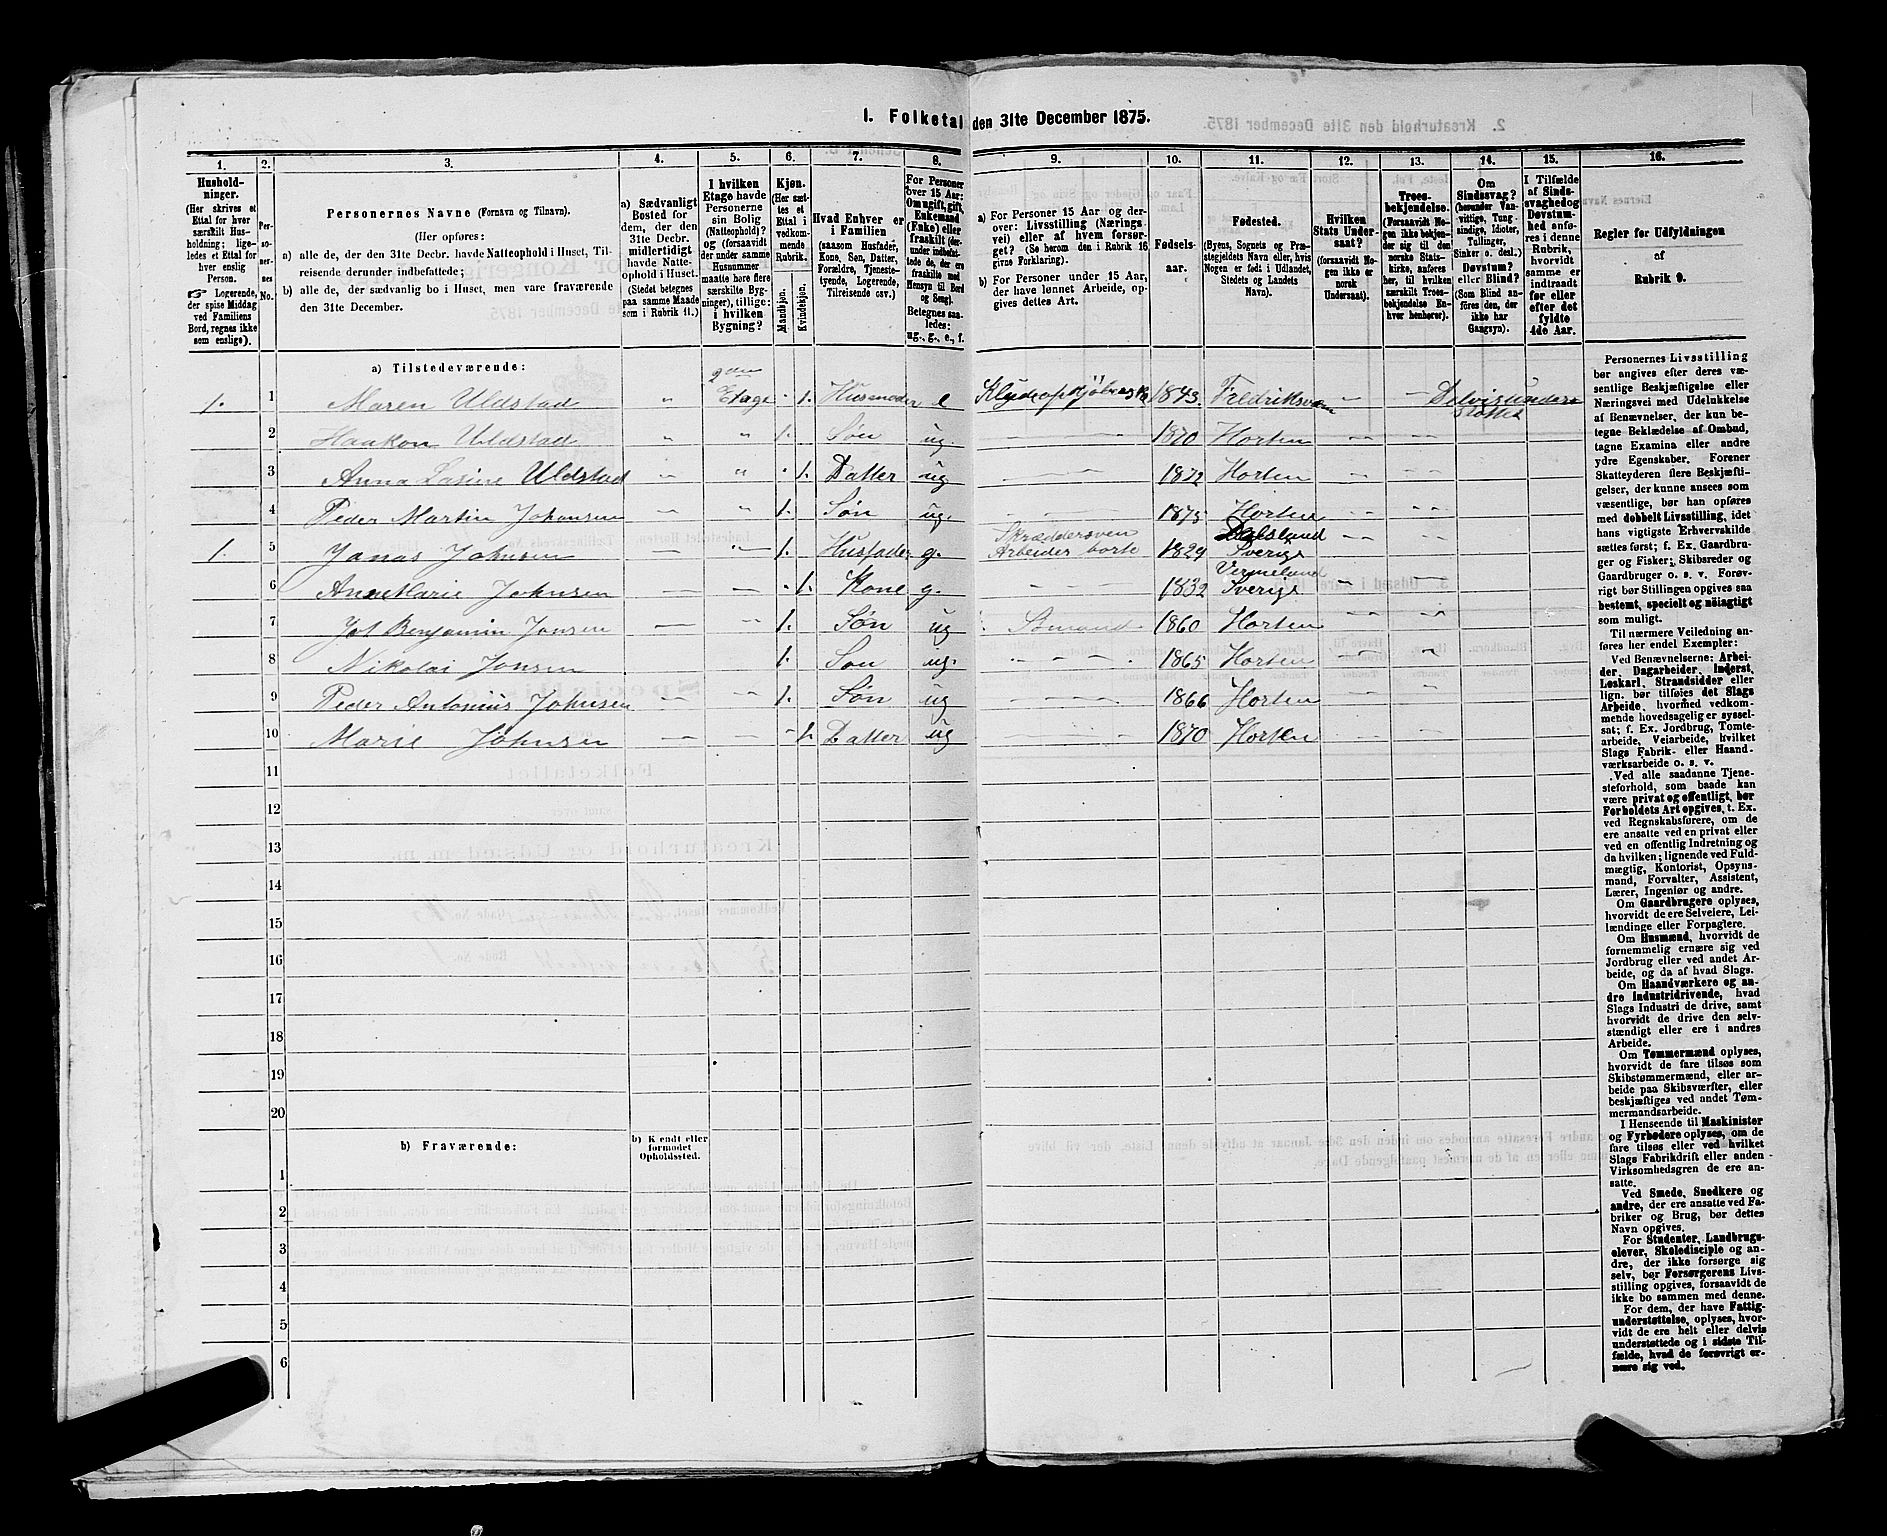 1. Folketal den 31te December 1875.
1. 2. 3. 4. 5. 6. 7. 8. 9. 10. 11. 12. 13. 14. 15. 16.
Husholdninger.
(Her skrives et
Ettal for hver
særskilt Husholdning;
ligeledes et Ettal
for hver
enslig
Person.
☞ Logerende,
der spise Middag
ved Familiens
Bord, regnes ikke
som enslige).
Personernes No.
Personernes Navne (Fornavn og Tilnavn).
(Her opføres:
a) alle de, der den 31te Decbr. havde Natteophold i Huset, Tilreisende
derunder indbefattede;
b) alle de, der sædvanlig bo i Huset, men vare fraværende
den 31te December.
a) Sædvanligt
Bosted for
dem, der den
31te Decbr.
midlertidigt
havde Natteophold
i Huset.
(Stedet betegnes
paa samme Maade
som i Rubrik 11.)
I hvilken
Etage havde
Personerne
sin Bolig
(Natteophold)?
og (forsaavidt
der under samme
Husnummer
maatte høre flere
særskilte Bygninger),
tillige:
i hvilken
Bygning?
Kjøn.
(Her sættes
et
Ettal i
vedkommende
Rubrik.
Mandkjøn.
Kvindekjøn.
Hvad Enhver er
i Familien
(saasom Husfader,
Kone, Søn, Datter,
Forældre, Tjenestetyende,
Logerende,
Tilreisende osv.)
For Personer
over 15 Aar:
Om ugift, gift,
Enkemand
(Enke) eller
fraskilt (derunder
indbefattede
de, der ere
fraskilte med
Hensyn til Bord
og Seng).
Betegnes saaledes:
ug., g., e., f.
a) For Personer 15 Aar og derover:
Livsstilling (Næringsvei)
eller af hvem forsørget?
(Se herom den i Rubrik 16
givne Forklaring).
b) For Personer under 15 Aar,
der have lønnet Arbeide, opgives
dettes Art.
Fødselsaar.
Fødested.
(Byens, Sognets og Præstegjeldets
Navn eller, hvis
Nogen er født i Udlandet,
Stedets og Landets
Navn).
Hvilken
Stats Undersaat?
(forsaavidt Nogen
ikke er
norsk
Undersaat).
Troesbekjendelse.
(Forsaavidt Nogen
ikke bekjender
sig til den
norske Statskirke,
anføres
her, til hvilken
særskilt Troesbekjendelse
Enhver
henhører).
Om
Sindssvag?
(herunder Vanvittige,
Tungsindige,
Idioter,
Tullinger,
Sinker o. desl.)
Døvstum?
eller Blind?
(Som Blind anføres
den, der
ikke har
Gangsyn).
I Tilfælde
af Sindssvaghed
og
Døvstumhed
anføres
i denne
Rubrik,
hvorvidt
samme er
indtraadt
før eller
efter det
fyldte
4de Aar.
Regler for Udfyldningen
af
Rubrik 9.
a) Tilstedeværende:
1. 1 Maren Uldstad " 2den Etage 1. Husmoder e 1843. Fredriksværn
2 Haakon Uldstad " " 1. Søn ug. 1870 Horten
3 Anna Lasine Uldstad " " 1. Datter ug 1872 Horten
4 Peder Martin Johansen " " 1. Søn ug. 1875 Horten
1. 5 Jonas Johnsen " " 1. Husfader g. Skræddersven Arbeider borte 1829 Dalsland Sverige
6 Anne Marie Johnsen 1. Kone g. 1832 Vermeland Sverige
7 Benjamin Jonsen " 1. Søn ug Sømand 1860 Horten
8 Nikolai Jonsen 1. Søn ug. 1865 Horten
9 Peder Antonius Johnsen " 1. Søn ug 1866 Horten
10 Marie Johnsen 1. Datter ug 1870 Horten
11
12
13
14
15
16
17
18
19
20
b) Fraværende:
b) Kjendt eller
formodet
Opholdssted.
1
2
3
4
5
6
Personernes Livsstilling
bør angives efter deres væsentlige
Beskjæftigelse eller
Næringsvei med Udelukkelse
af Benævnelser, der kun betegne
Beklædelse af Ombud,
tagne Examina eller andre
ydre Egenskaber. Forener
Skatteyderen flere Beskjæftigelser,
der kunne ansees som
væsentlige, bør han opføres
med dobbelt Livsstilling, idet
hans vigtigste Erhvervskilde
sættes først; f. Ex. Gaardbruger
og Fisker; Skibsreder og
Gaardbruger o. s. v. Forøvrigt
bør Stillingen opgives saa
bestemt, specielt og nøiagtigt
som muligt.
Til nærmere Veiledning anføres
her endel Exempler:
Ved Benævnelserne: Arbeider,
Dagarbeider, Inderst,
Løskarl, Strandsidder eller
lign. bør tilføies det Slags
Arbeide, hvormed vedkommende
hovedsagelig er sysselsat;
f. Ex. Jordbrug, Tomtearbeide,
Veiarbeide, hvilket
Slags Fabrik- eller Haandværksarbeide
o. s. v.
Ved alle saadanne Tjenesteforhold,
som baade kan
være privat og offentligt, bør
Forholdets Art opgives, t. Ex.
ved Regnskabsførere, om de
ere ansatte ved en privat eller
ved en offentlig Indretning og
da hvilken; lignende ved Fuldmægtig,
Kontorist, Opsynsmand,
Forvalter, Assistent,
Lærer, Ingeniør og andre.
Om Gaardbrugere oplyses,
hvorvidt de ere Selveiere, Leilændinge
eller Forpagtere.
Om Husmænd, hvorvidt de
fornemmelig ernære sig ved
Jordbrug eller ved andet Arbeide,
og da af hvad Slags.
Om Haandværkere og andre
Industridrivende, hvad
Slags Industri de drive, samt
hvorvidt de drive den selvstændigt
eller ere i andres
Arbeide.
Om Tømmermænd oplyses,
hvorvidt de fare tilsøs som
Skibstømmermænd, eller arbeide
paa Skibsværfter, eller
beskjæftiges ved andet Tømmermandsarbeide.
I Henseende til Maskinister
og Fyrbødere oplyses, om de
fare tilsøs eller ved hvilket
Slags Fabrikdrift eller anden
Virksomhedsgren de ere ansatte.
Ved Smede, Snedkere og
andre, der ere ansatte ved Fabriker
og Brug, bør dettes
Navn opgives.
For Studenter, Landbrugselever,
Skoledisciple og andre,
der ikke forsørge sig
selv, bør Forsørgerens Livsstilling
opgives, forsaavidt de
ikke bo sammen med denne.
For dem, der have Fattigunderstøttelse,
oplyses, hvorvidt
de ere helt eller delvis
understøttede og i sidste Tilfælde,
hvad de forøvrigt ernære
sig ved.